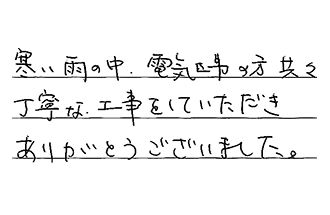 寒い雨の中、電気工事の方共々
丁寧な、工事をしていただき
ありがとうございました。